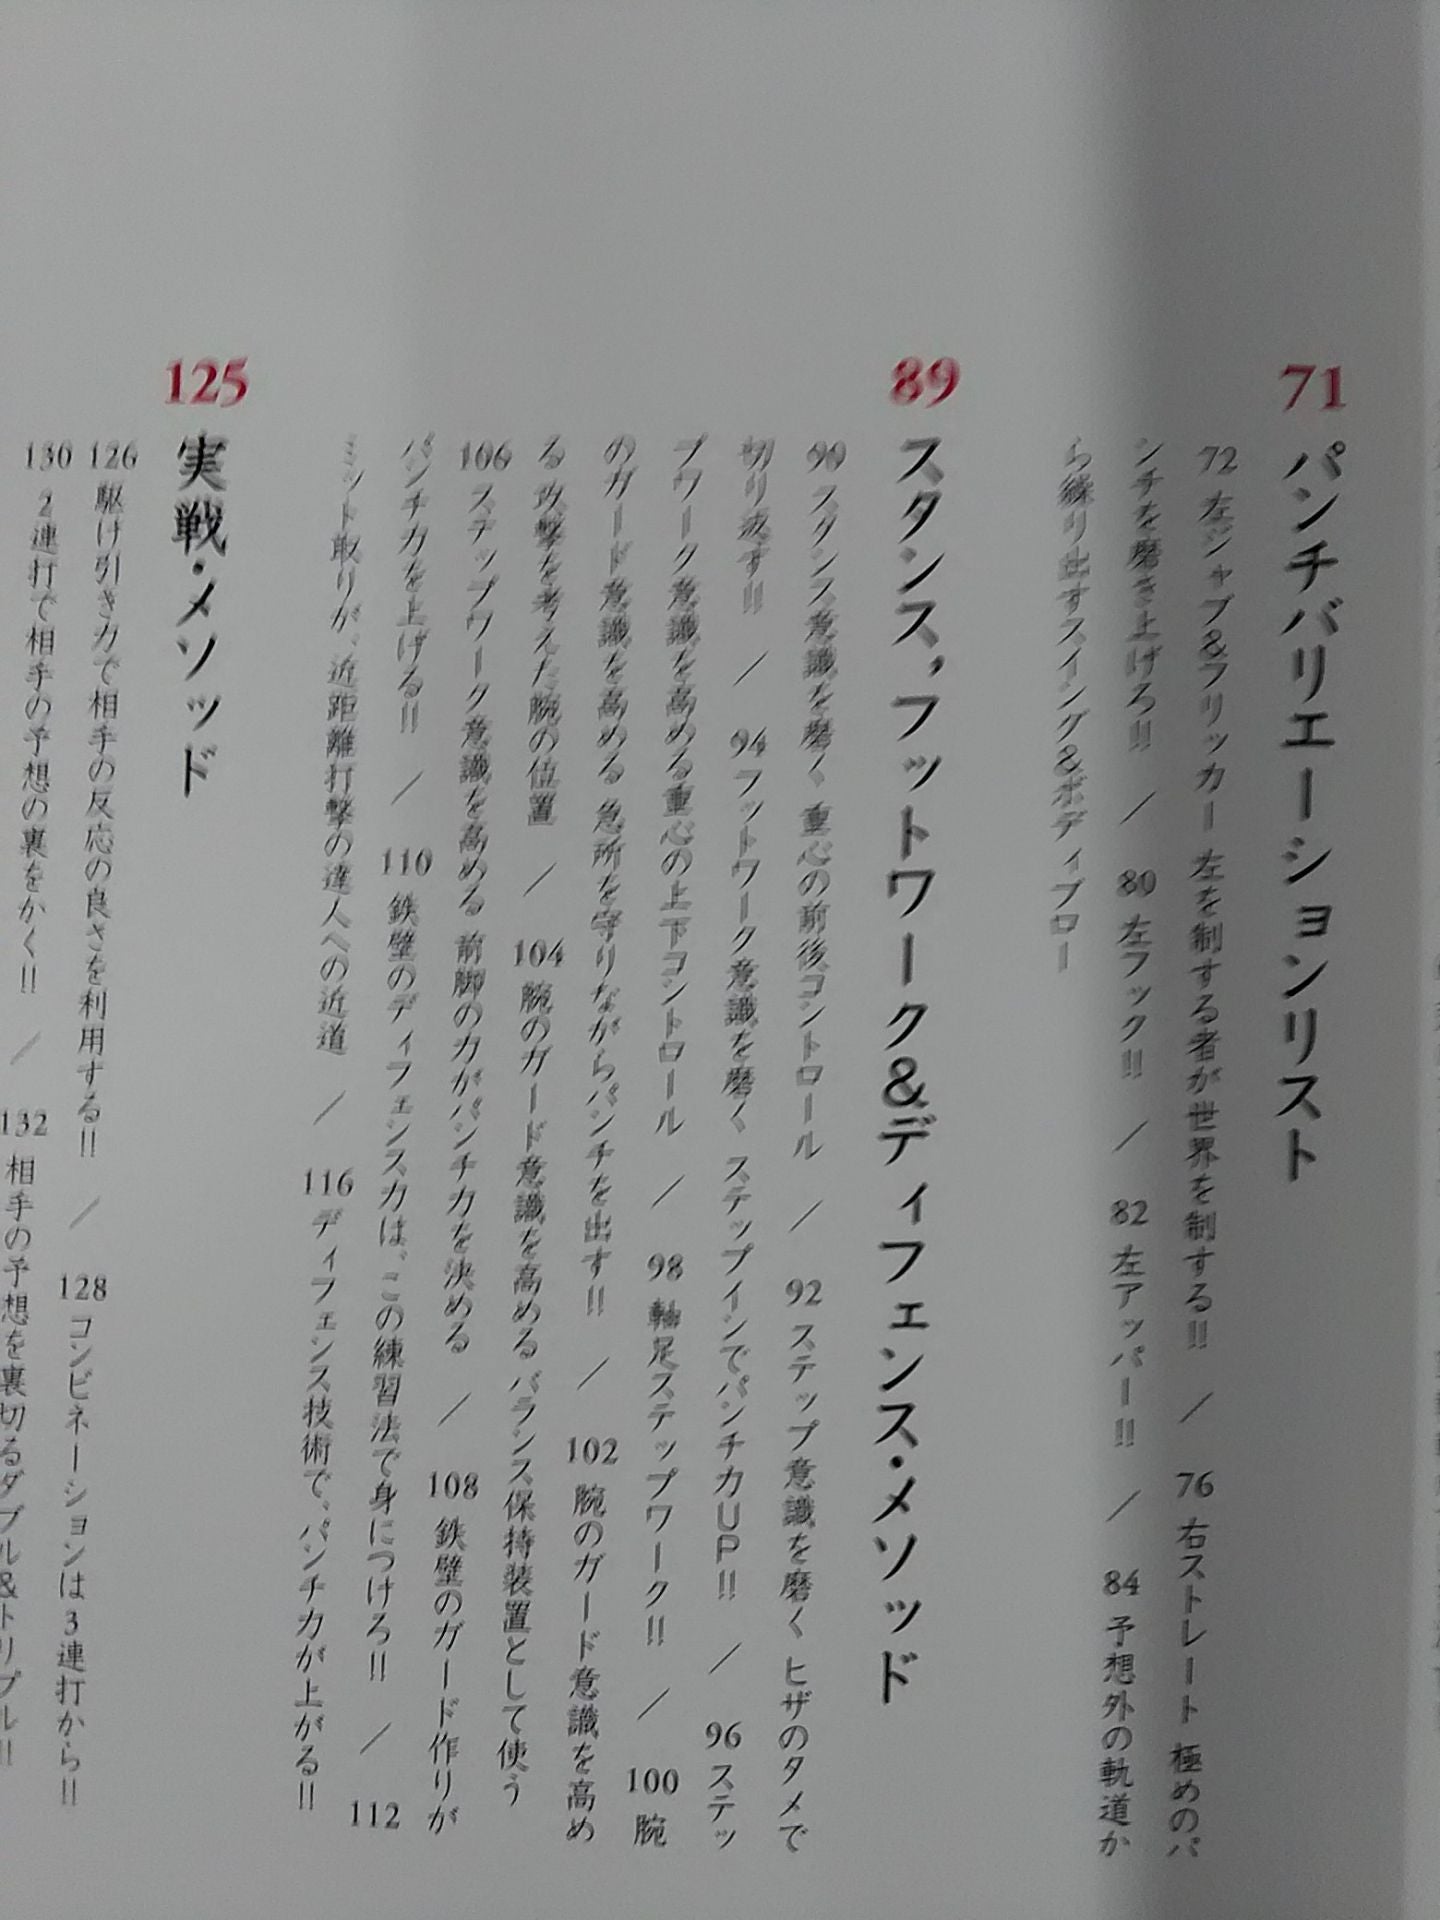 71 パンチバリエーションリスト
72 左ジャブ&フリッカー 左を制する者が世界を制する!! ／ 76 右ストレート 極めのパ
ンチを磨き上げろ!! ／ 80 左フック!! ／ 82 左アッパー!! ／ 84 予想外の軌道か
ら繰り出すスイング&ボディブロー
89 スタンス,フットワーク&ディフェンス・メソッド
90 スタンス意識を磨く 重心の前後コントロール ／ 92 ステップ意識を磨く ヒザのタメで
切り返す!! ／ 94 フットワーク意識を磨く ステップインでパンチ力UP!! ／ 96 ステッ
プワーク意識を高める重心の上下コントロール ／ 98 軸足ステップワーク!! ／ 100 腕
のガード意識を高める 急所を守りながらパンチを出す!! ／ 102 腕のガード意識を高め
る 攻撃を考えた腕の位置 ／ 104 腕のガード意識を高める バランス保持装置として使う
106 ステップワーク意識を高める 前脚の力がパンチ力を決める ／ 108 鉄壁のガード作りが
パンチ力を上げる!! ／ 110 鉄壁のディフェンス力は、この練習法で身につけろ!! ／ 112
ミット取りが、近距離打撃の達人への近道 ／ 116 ディフェンス技術で、パンチ力が上がる!!
125 実戦・メソッド
126 駆け引き力で相手の反応の良さを利用する!! ／ 128 コンビネーションは3連打から!!
130 2連打で相手の予想の裏をかく!! ／ 132 相手の予想を裏切るダブル&トリプル!!